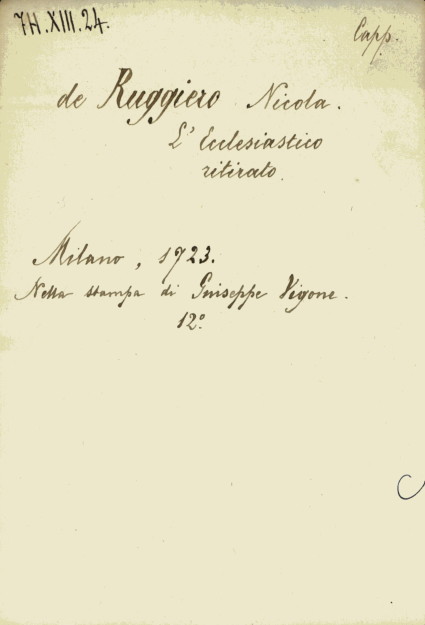 7H.XIII.24.
Capp.
de Ruggiero Nicola.
L' Ecclesiastico
ritirato.
Milano, 1723.
Nella stampa di Giuseppe Vigone.
12°.